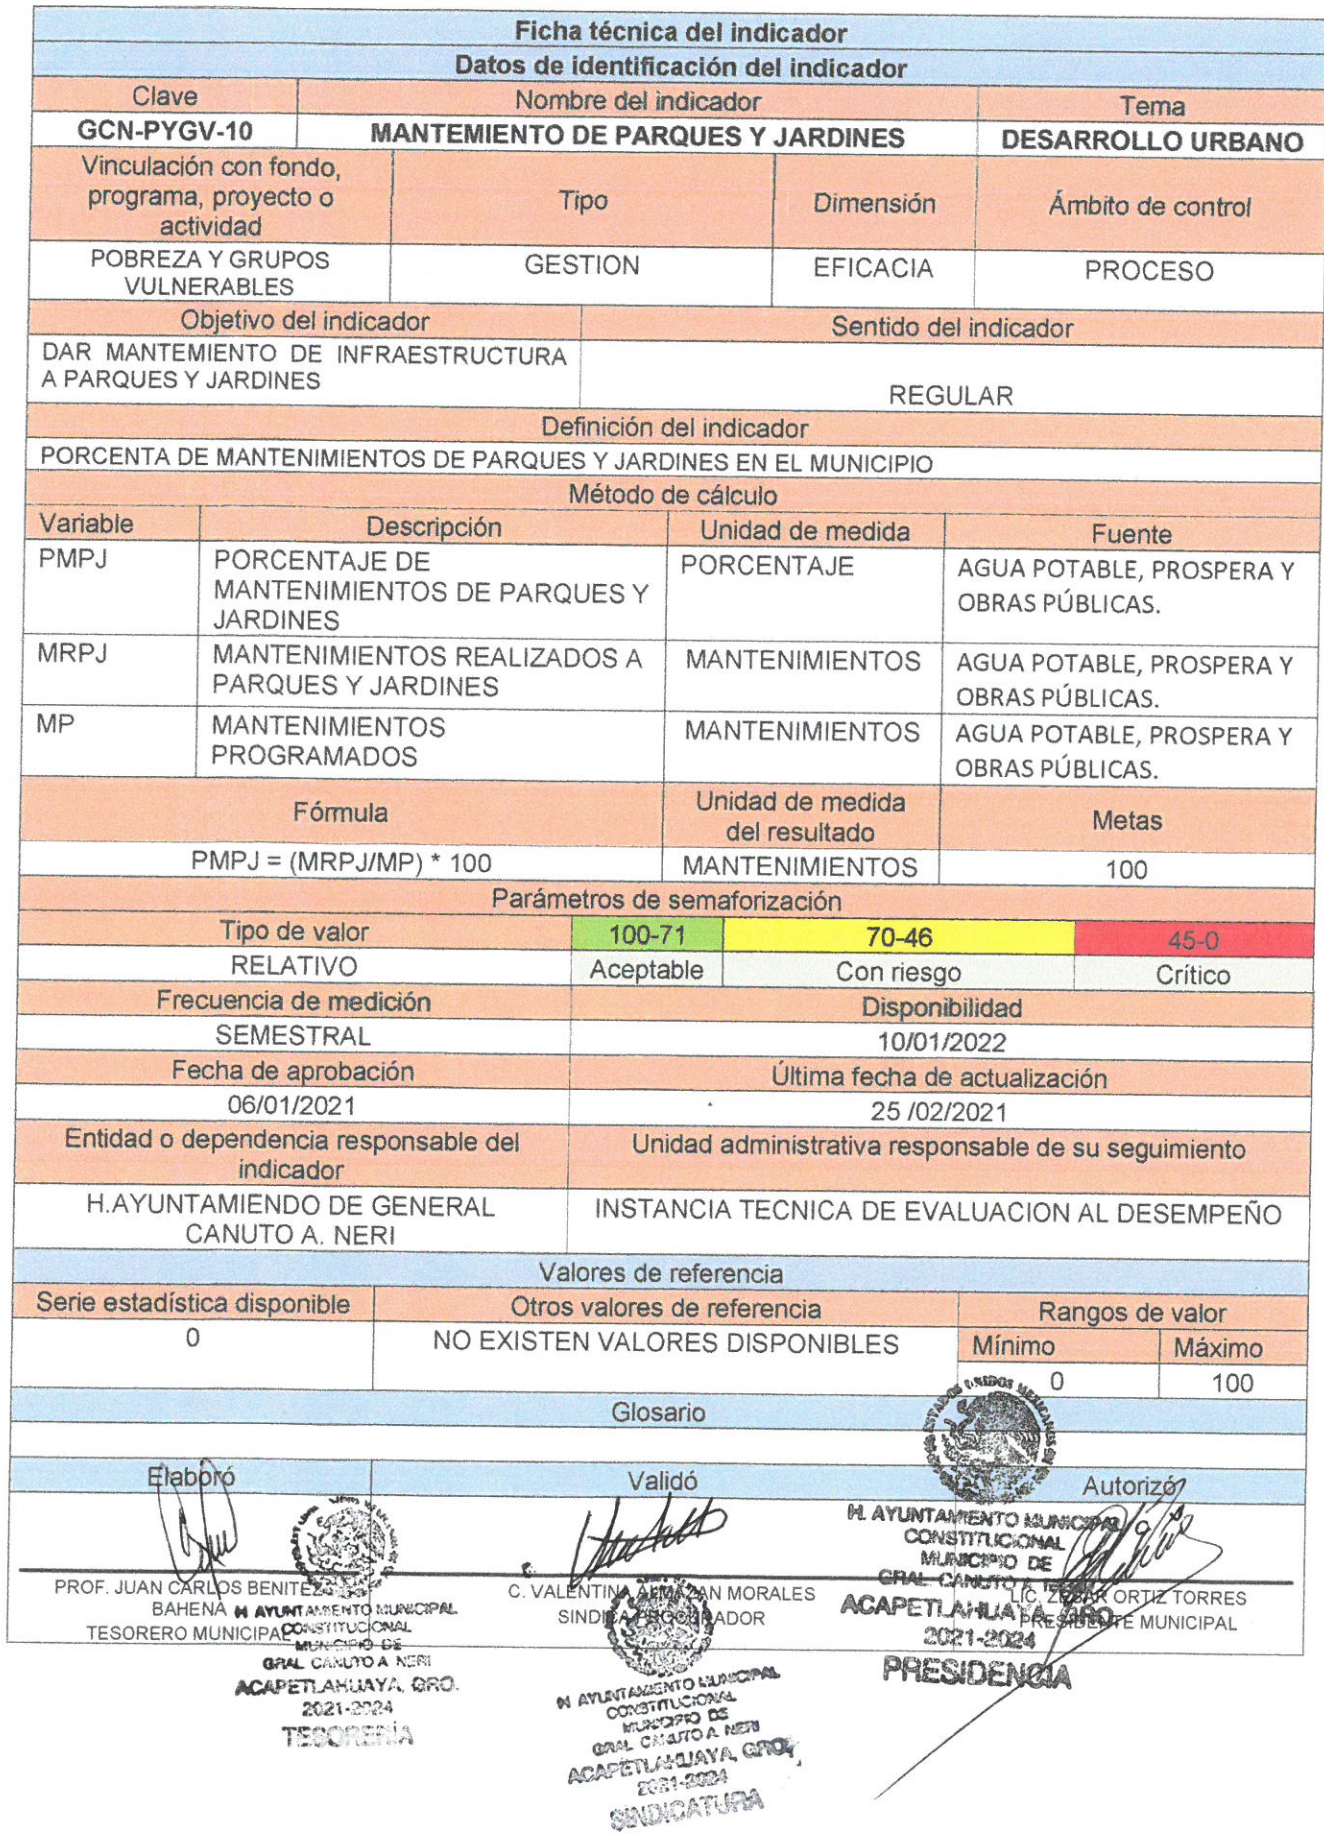 Ficha técnica del indicador
Datos de identificación del indicador
Clave
Nombre del indicador
Tema
GCN-PYGV-10
MANTEMIENTO DE PARQUES Y JARDINES
DESARROLLO URBANO
Vinculación con fondo,
programa, proyecto o
actividad
Tipo
Dimensión
Ámbito de control
POBREZA Y GRUPOS
VULNERABLES
GESTION
EFICACIA
PROCESO
Objetivo del indicador
Sentido del indicador
DAR MANTEMIENTO DE INFRAESTRUCTURA
A PARQUES Y JARDINES
REGULAR
Definición del indicador
PORCENTA DE MANTENIMIENTOS DE PARQUES Y JARDINES EN EL MUNICIPIO
Método de cálculo
Variable
Descripción
Unidad de medida
Fuente
PMPJ
PORCENTAJE DE
MANTENIMIENTOS DE PARQUES Y
JARDINES
PORCENTAJE
AGUA POTABLE, PROSPERA Y
OBRAS PÚBLICAS.
MRPJ
MANTENIMIENTOS REALIZADOS A
PARQUES Y JARDINES
MANTENIMIENTOS
AGUA POTABLE, PROSPERA Y
OBRAS PÚBLICAS.
MP
MANTENIMIENTOS
PROGRAMADOS
MANTENIMIENTOS
AGUA POTABLE, PROSPERA Y
OBRAS PÚBLICAS.
Fórmula
Unidad de medida
del resultado
Metas
PMPJ = (MRPJ/MP) * 100
MANTENIMIENTOS
100
Parámetros de semaforización
Tipo de valor
100-71
70-46
45-0
RELATIVO
Aceptable
Con riesgo
Crítico
Frecuencia de medición
Disponibilidad
SEMESTRAL
10/01/2022
Fecha de aprobación
Última fecha de actualización
06/01/2021
25 /02/2021
Entidad o dependencia responsable del
indicador
Unidad administrativa responsable de su seguimiento
H.AYUNTAMIENDO DE GENERAL
CANUTO A. NERI
INSTANCIA TECNICA DE EVALUACION AL DESEMPEÑO
Valores de referencia
Serie estadística disponible
Otros valores de referencia
Rangos de valor
0
NO EXISTEN VALORES DISPONIBLES
Mínimo
Máximo
0
100
Glosario
Elaboró
Validó
Autorizó
PROF. JUAN CARLOS BENITEZ
BAHENA
TESORERO MUNICIPAL
H AYUNTAMIENTO MUNICIPAL
CONSTITUCIONAL
MUNICIPIO DE
GRAL CANUTO A NERI
ACAPETLAHUAYA, GRO.
2021-2024
TESORERÍA
C. VALENTINA ALMAZAN MORALES
SINDICA PROCURADOR
H AYUNTAMIENTO MUNICIPAL
CONSTITUCIONAL
MUNICIPIO DE
GRAL CANUTO A. NERI
ACAPETLAHUAYA, GRO.
2021-2024
SINDICATURA
ESTADOS UNIDOS MEXICANOS
H. AYUNTAMIENTO MUNICIPAL
CONSTITUCIONAL
MUNICIPIO DE
GRAL CANUTO A
ACAPETLAHUAYA, GRO.
2021-2024
PRESIDENCIA
LIC. ORTIZ TORRES
PRESIDENTE MUNICIPAL